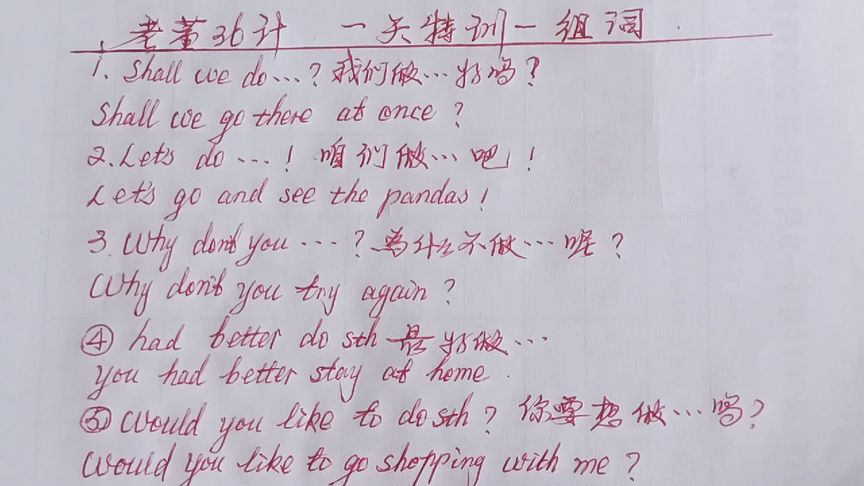 老董36计 一关特训一组词
1. Shall we do…? 我们做…好吗?
Shall we go there at once?
2. Let's do …! 咱们做…吧!
Let's go and see the pandas!
3. Why don't you …? 为什么不做…呢?
Why don't you try again?
④ had better do sth 最好做…
you had better stay at home.
⑤ Would you like to do sth? 你要想做…吗?
Would you like to go shopping with me?